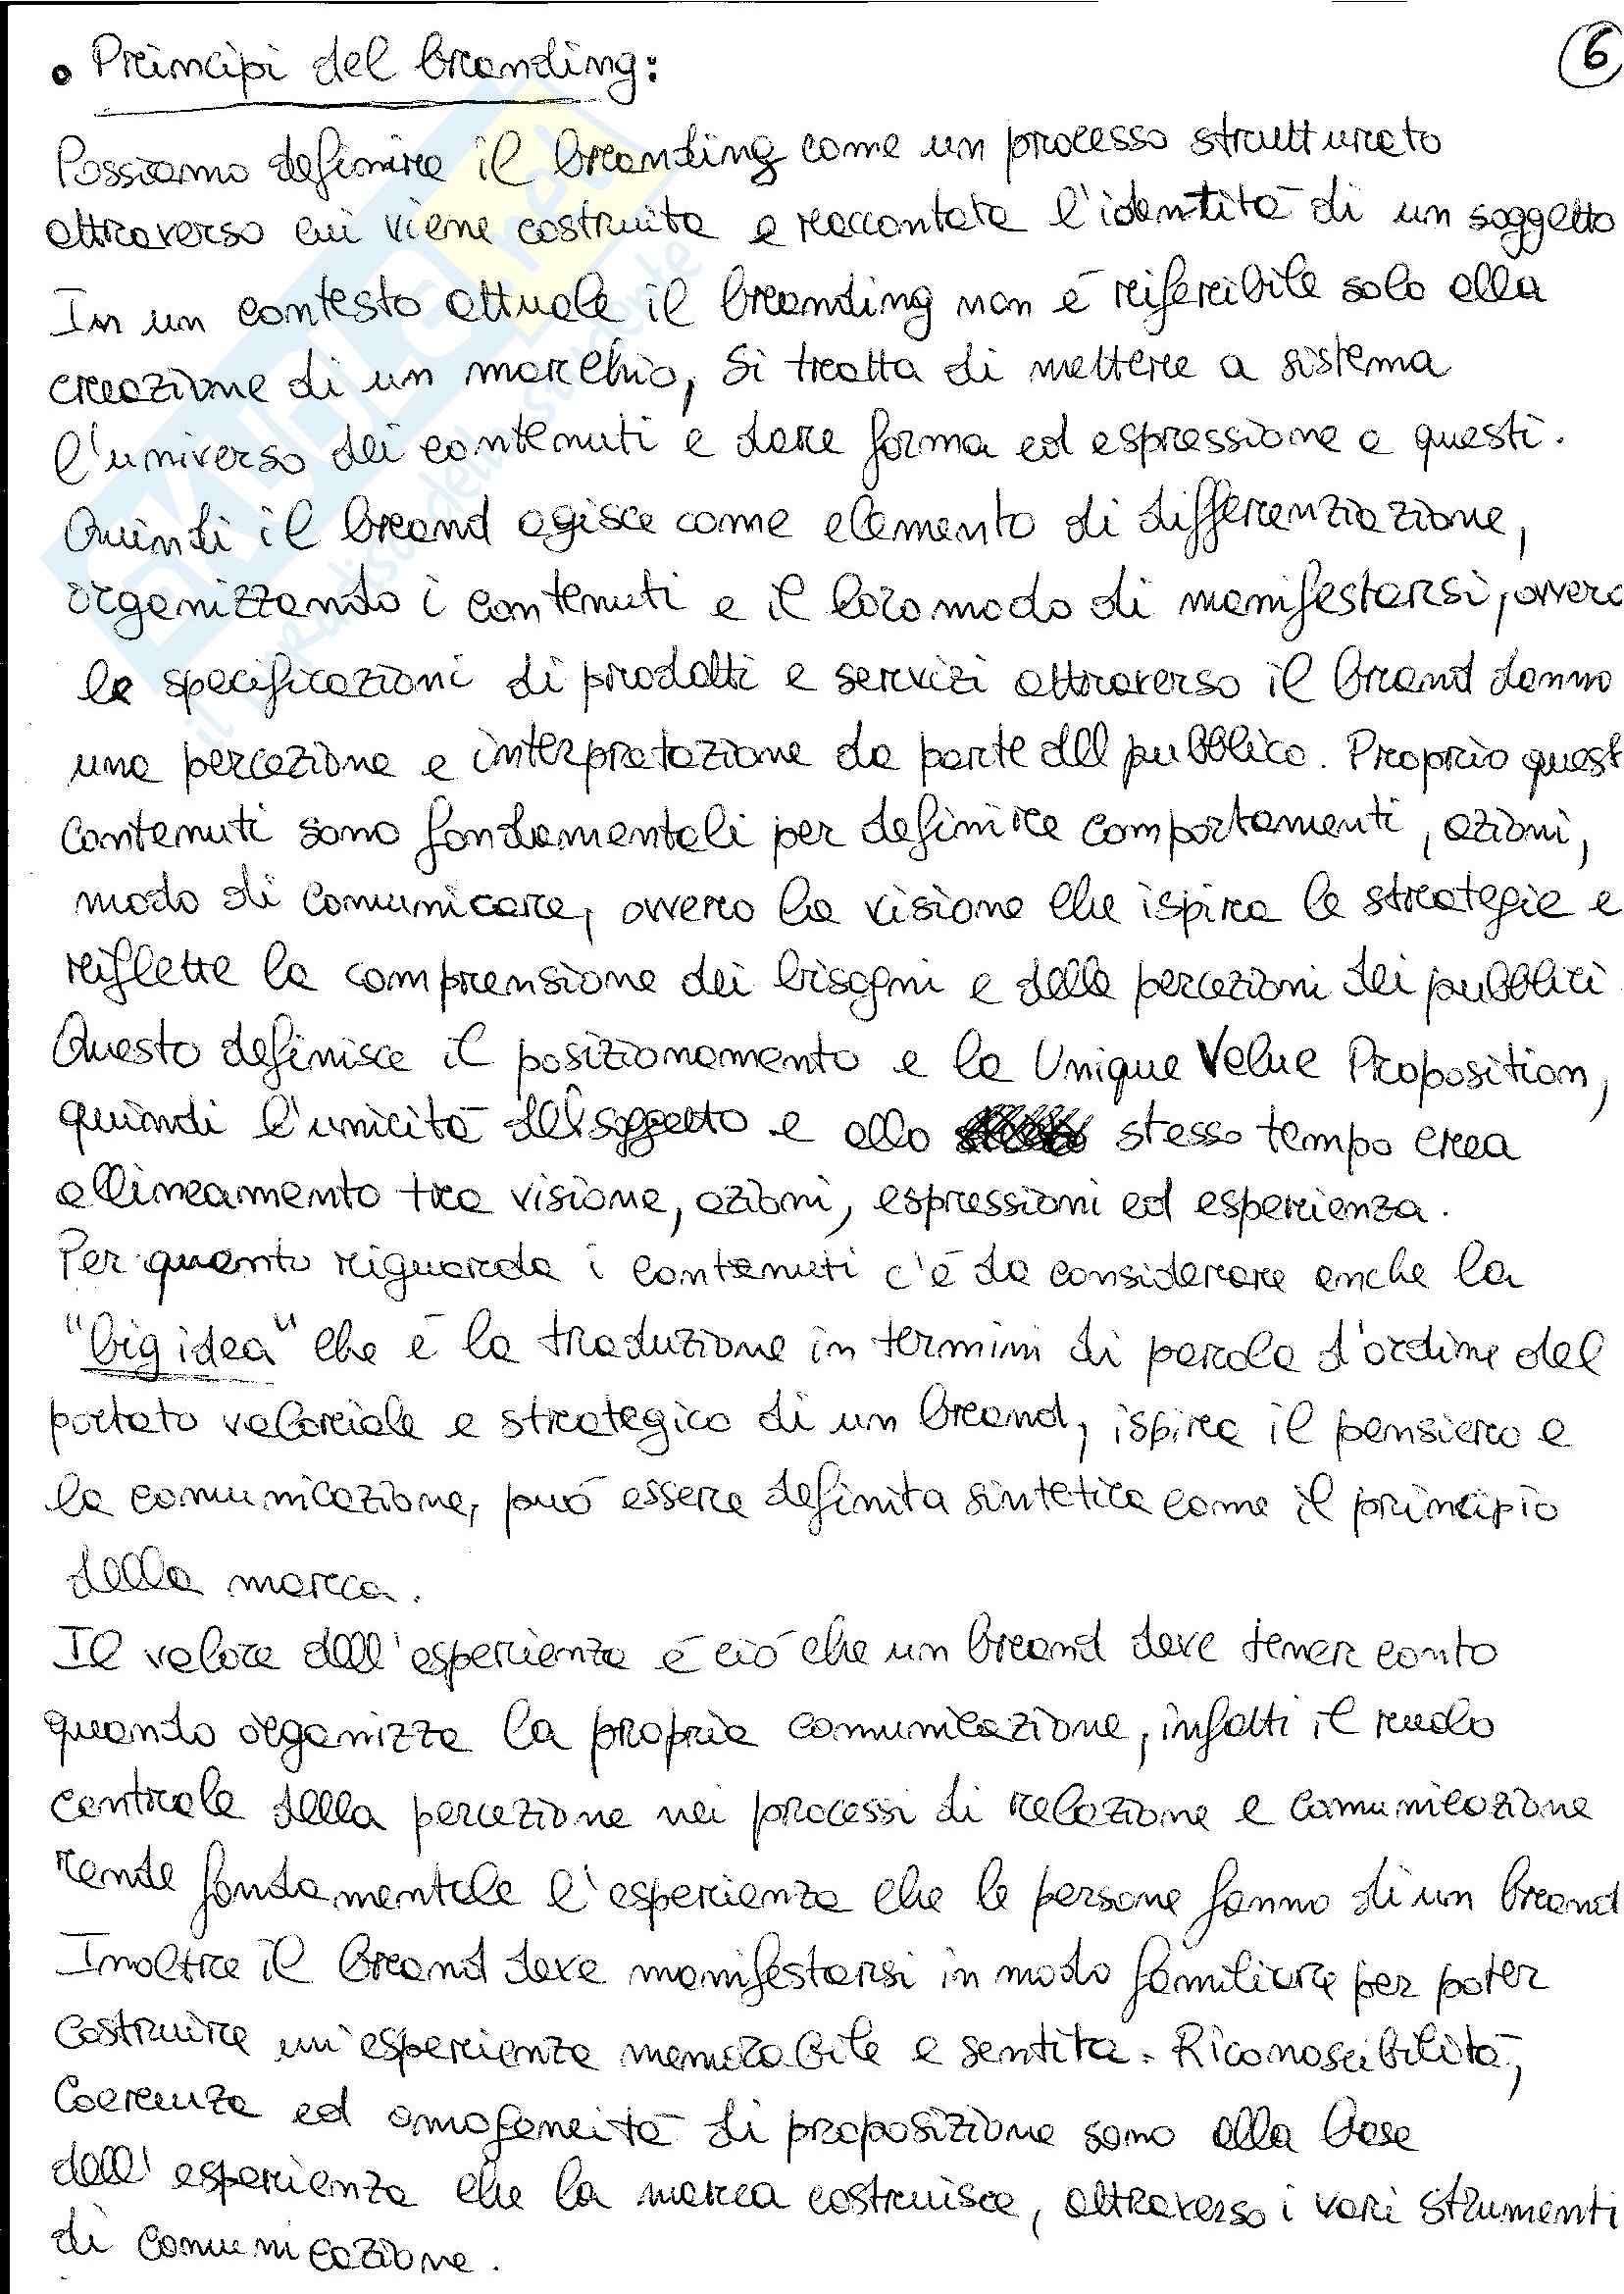 6
• Principi del branding:
Possiamo definire il branding come un processo strutturato
attraverso cui viene costruita e raccontata l'identità di un soggetto
In un contesto attuale il branding non è riferibile solo alla
creazione di un marchio, si tratta di mettere a sistema
l'universo dei contenuti e dare forma ed espressione a questi.
Quindi il brand agisce come elemento di differenziazione,
organizzando i contenuti e il loro modo di manifestarsi, ovvero
le specificazioni di prodotti e servizi attraverso il brand danno
una percezione e interpretazione da parte del pubblico. Proprio quest
contenuti sono fondamentali per definire comportamenti, azioni,
modo di comunicare, ovvero la visione che ispira le strategie e
riflette la comprensione dei bisogni e delle percezioni dei pubblici.
Questo definisce il posizionamento e la Unique Value Proposition,
quindi l'unicità del soggetto e allo stesso tempo crea
allineamento tra visione, azioni, espressioni ed esperienza.
Per quanto riguarda i contenuti c'è da considerare anche la
"big idea" che è la traduzione in termini di parola d'ordine del
portato valoriale e strategico di un brand, ispira il pensiero e
la comunicazione, può essere definita sintetica come il principio
della marca.
Il valore dell'esperienza è ciò che un brand deve tener conto
quando organizza la propria comunicazione, infatti il ruolo
centrale della percezione nei processi di relazione e comunicazione
rende fondamentale l'esperienza che le persone fanno di un brand
Inoltre il brand deve manifestarsi in modo familiare per poter
costruire un'esperienza memorabile e sentita. Riconoscibilità,
coerenza ed omogeneità di proposizione sono alla base
dell'esperienza che la marca costruisce, attraverso i vari strumenti
di comunicazione.